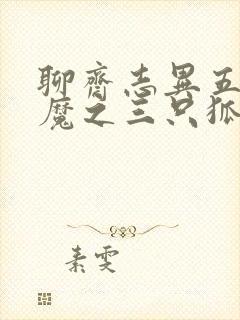 聊齋志異五
魔之三只狐
素雯